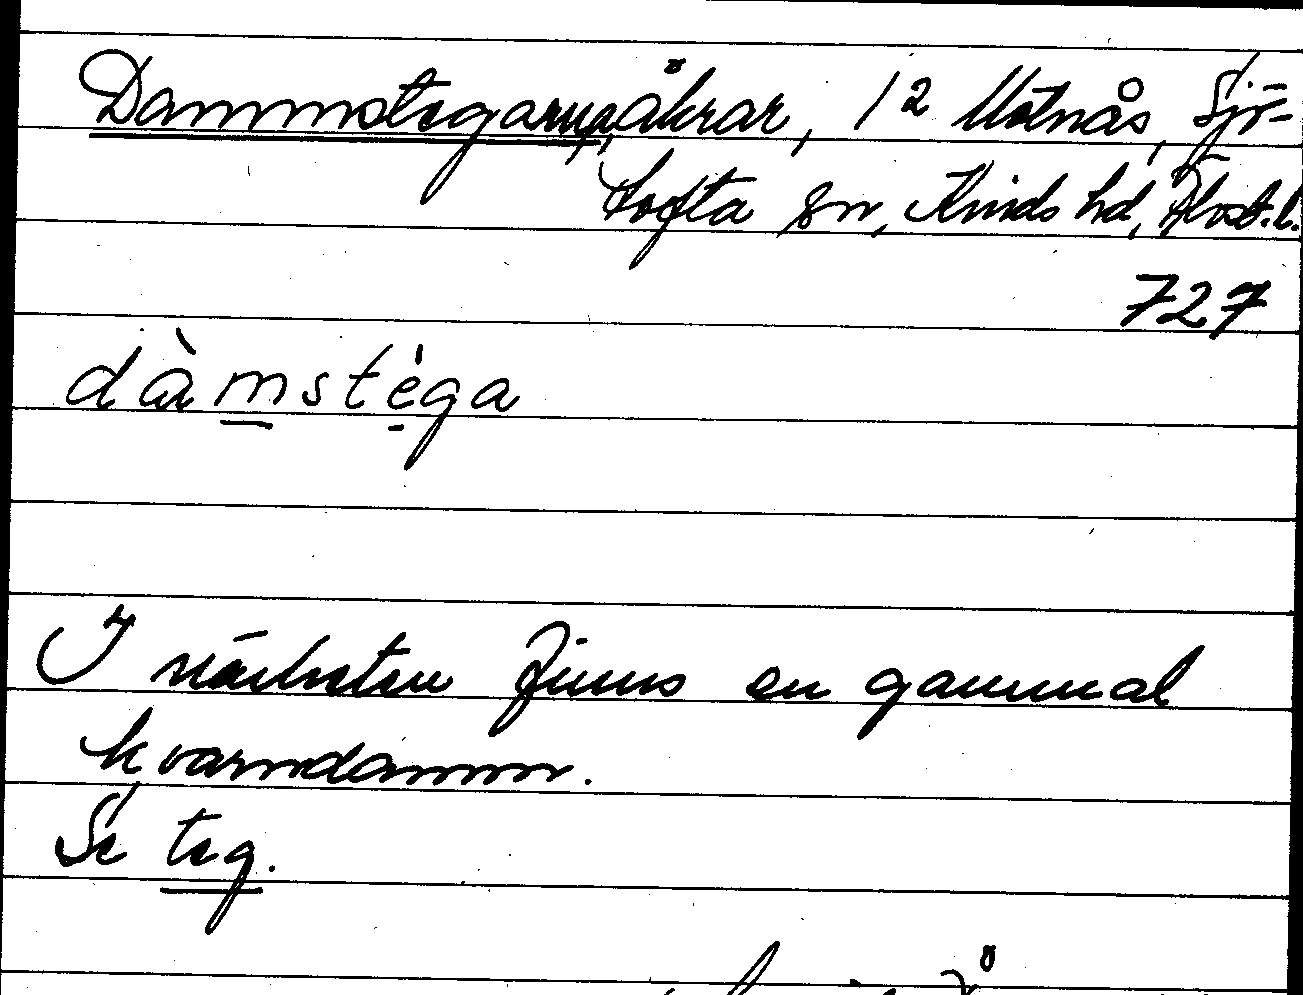 Dammstegarna, åkrar, 12 Motnås, Sjö-
tofta sn, Kinds hd, Älvsb.l.
727
dàmstega
I närheten finns en gammal
kvarndamm.
Se teg.